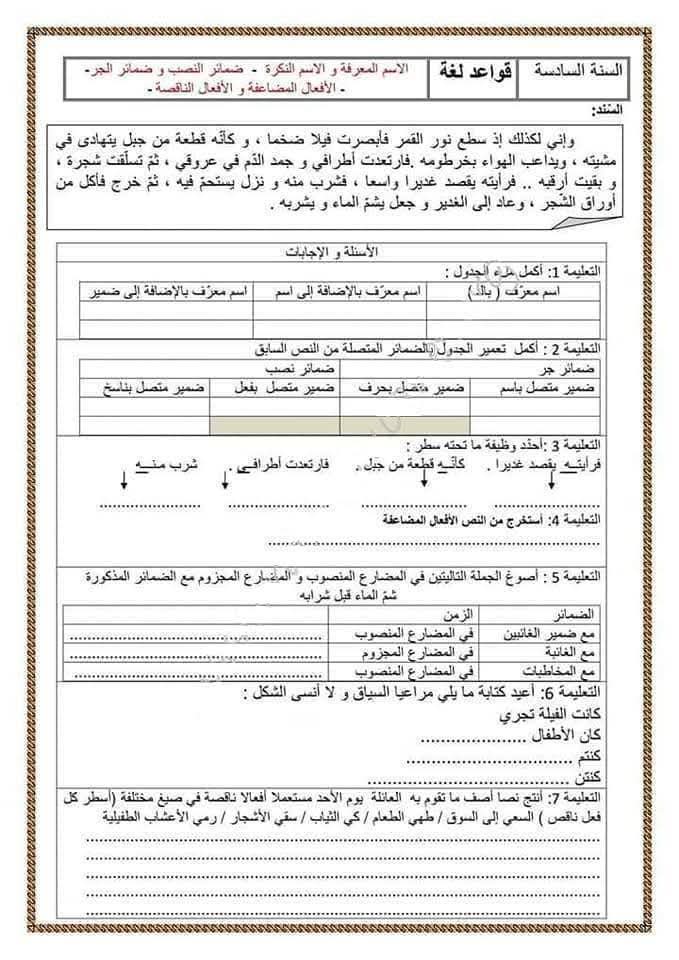 السنة السادسة
قواعد لغة
الاسم المعرفة و الاسم النكرة - ضمائر النصب و ضمائر الجر-
- الأفعال المضاعفة و الأفعال الناقصة -
السّند:
وإني لكذلك إذ سطع نور القمر فأبصرت فيلا ضخما ، و كأنّه قطعة من جبل يتهادى في
مشيته ، ويداعب الهواء بخرطومه .فارتعدت أطرافي و جمد الدّم في عروقي ، ثمّ تسلّقت شجرة ،
و بقيت أرقبه .. فرأيته يقصد غديرا واسعا ، فشرب منه و نزل يستحمّ فيه ، ثمّ خرج فأكل من
أوراق الشّجر ، وعاد إلى الغدير و جعل يشمّ الماء و يشربه .
الأسئلة و الإجابات
التعليمة 1: أكمل ملء الجدول :
اسم معرّف ( بالـ) اسم معرّف بالإضافة إلى اسم اسم معرّف بالإضافة إلى ضمير
التعليمة 2 : أكمل تعمير الجدول بالضمائر المتصلة من النص السابق
ضمائر جر ضمائر نصب
ضمير متصل باسم ضمير متصل بحرف ضمير متصل بفعل ضمير متصل بناسخ
التعليمة 3 :أحدّد وظيفة ما تحته سطر :
فرأيتـه يقصد غديرا . كأنّـه قطعة من جَبل . فارتعدت أطرافـي . شرب منـه
........................ ........................ ........................ ........................
التعليمة 4: أستخرج من النص الأفعال المضاعفة
................................................................................
التعليمة 5 : أصوغ الجملة التاليتين في المضارع المنصوب و المضارع المجزوم مع الضمائر المذكورة
شمّ الماء قبل شرابه
الضمائر الزمن
مع ضمير الغائبين في المضارع المنصوب ............................................................
مع الغائبة في المضارع المجزوم ............................................................
مع المخاطبات في المضارع المنصوب ............................................................
التعليمة 6: أعيد كتابة ما يلي مراعيا السياق و لا أنسى الشكل :
كانت الفيلة تجري
كان الأطفال .........................
كنتم ........................................
كنتن ................................................
التعليمة 7: أنتج نصا أصف ما تقوم به العائلة يوم الأحد مستعملا أفعالا ناقصة في صيغ مختلفة (أسطر كل
فعل ناقص ) السعي إلى السوق / طهي الطعام / كي الثياب / سقي الأشجار / رمي الأعشاب الطفيلية
................................................................................
................................................................................
................................................................................
................................................................................
................................................................................